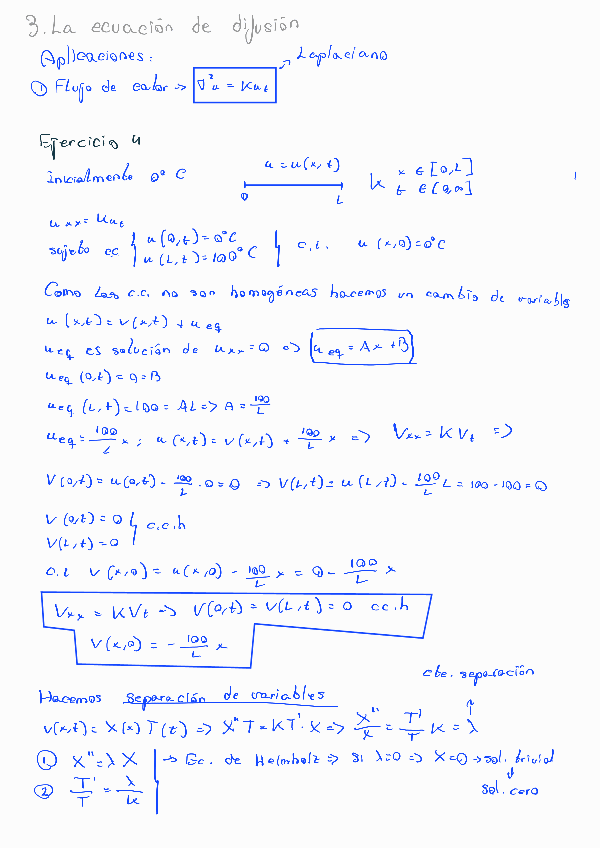 3. La ecuación de difusión
Aplicaciones: → Laplaciano
① Flujo de calor → ∇²u = Kuₜ
Ejercicio 4
Inicialmente 0° C
u = u(x, t)
0 L
x ∈ [0, L]
t ∈ [0, ∞]
uₓₓ = Kuₜ
sujeto cc { u(0,t) = 0°C } c.i. u(x,0) = 0°C
u(L,t) = 100°C
Como las c.c. no son homogéneas hacemos un cambio de variables
u(x,t) = v(x,t) + u eq
u eq es solución de uₓₓ = 0 => u eq = Ax + B
u eq (0,t) = 0 = B
u eq (L,t) = 100 = AL => A = 100/L
u eq = 100/L x ; u(x,t) = v(x,t) + 100/L x => Vₓₓ = K Vₜ =>
V(0,t) = u(0,t) - 100/L · 0 = 0 => V(L,t) = u(L,t) - 100/L L = 100 - 100 = 0
V(0,t) = 0 } c.c.h
V(L,t) = 0
c.i V(x,0) = u(x,0) - 100/L x = 0 - 100/L x
Vₓₓ = KVₜ => V(0,t) = V(L,t) = 0 cc.h
V(x,0) = - 100/L x
cte. separación
Hacemos separación de variables
v(x,t) = X(x) T(t) => X'' T = KT' · X => X''/X = T'/T K = λ
① X'' = λ X → Ec. de Helmholz => si λ=0 => X=0 → sol. trivial
② T'/T = λ/K
sol. cero